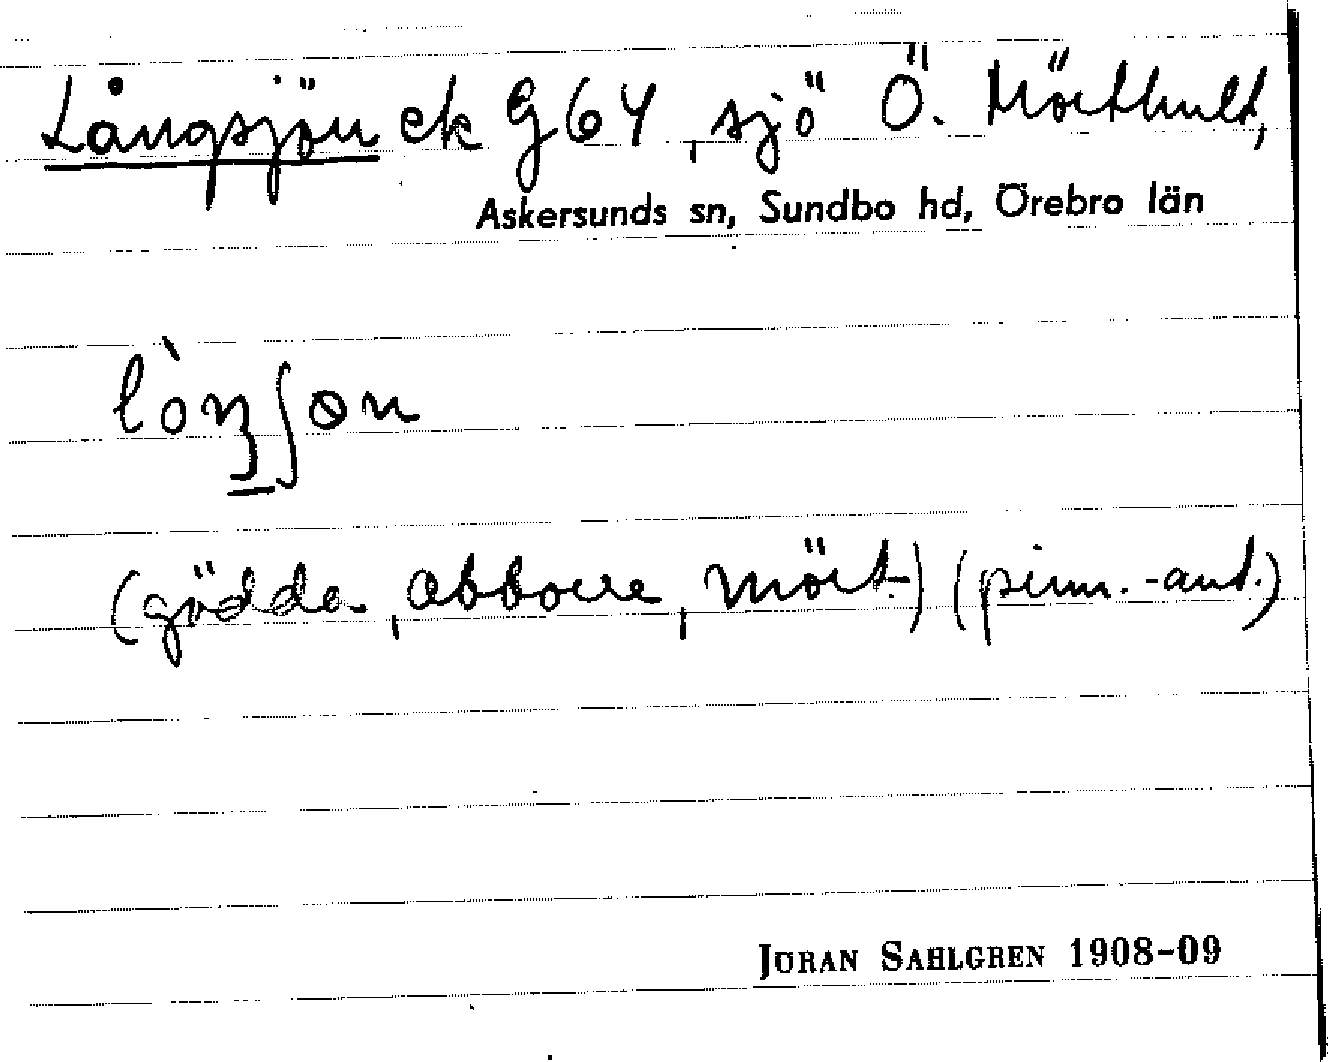 Långsjön ek G64, sjö Ö. Mörthult,
Askersunds sn, Sundbo hd, Örebro län
lòŋʃøn
(gädda, abborre, mört) (pinn.-ant.)
JÖRAN SAHLGREN 1908-09